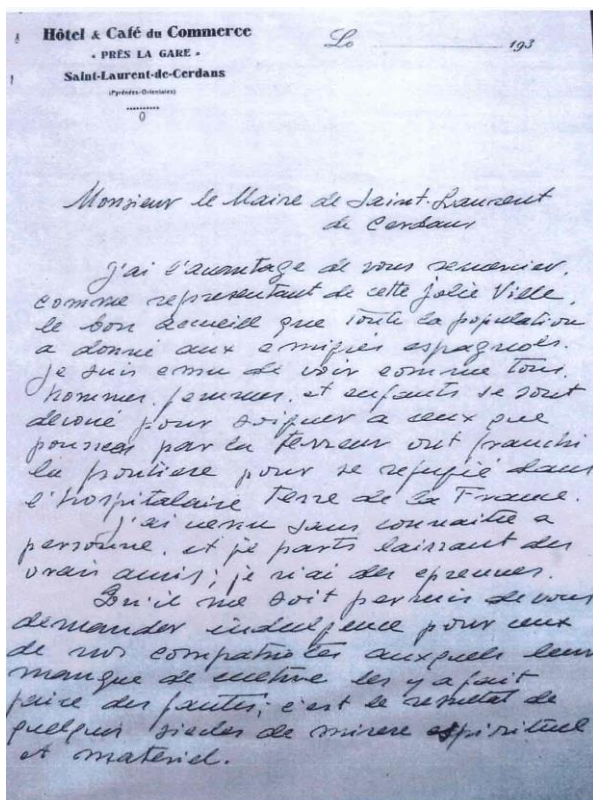 Hôtel & Café du Commerce
• PRÈS LA GARE •
Saint-Laurent-de-Cerdans
(Pyrénées-Orientales)
Le 193
Monsieur le Maire de Saint-Laurent
de Cerdans
J'ai l'avantage de vous remercier,
comme representant de cette jolie Ville,
le bon accueill que toute la population
a donné aux emigrés espagnols.
Je suis emu de voir comme tous,
hommes, femmes, et enfants se sont
devoué pour soigner a ceux que
pousses par la terreur ont franchi
la frontiere pour se refugié dans
l'hospitalaire Terre de la France.
J'ai venu sans connaitre a
personne, et je parts laissant des
vrais amis; je
Qu'il me soit permis de vous
demander indulgence pour ceux
de nos compatriotes auxquels leur
manque de culture les y a fait
faire des fautes; c'est le resultat de
quelques siecles de misere espirituel
et materiel.